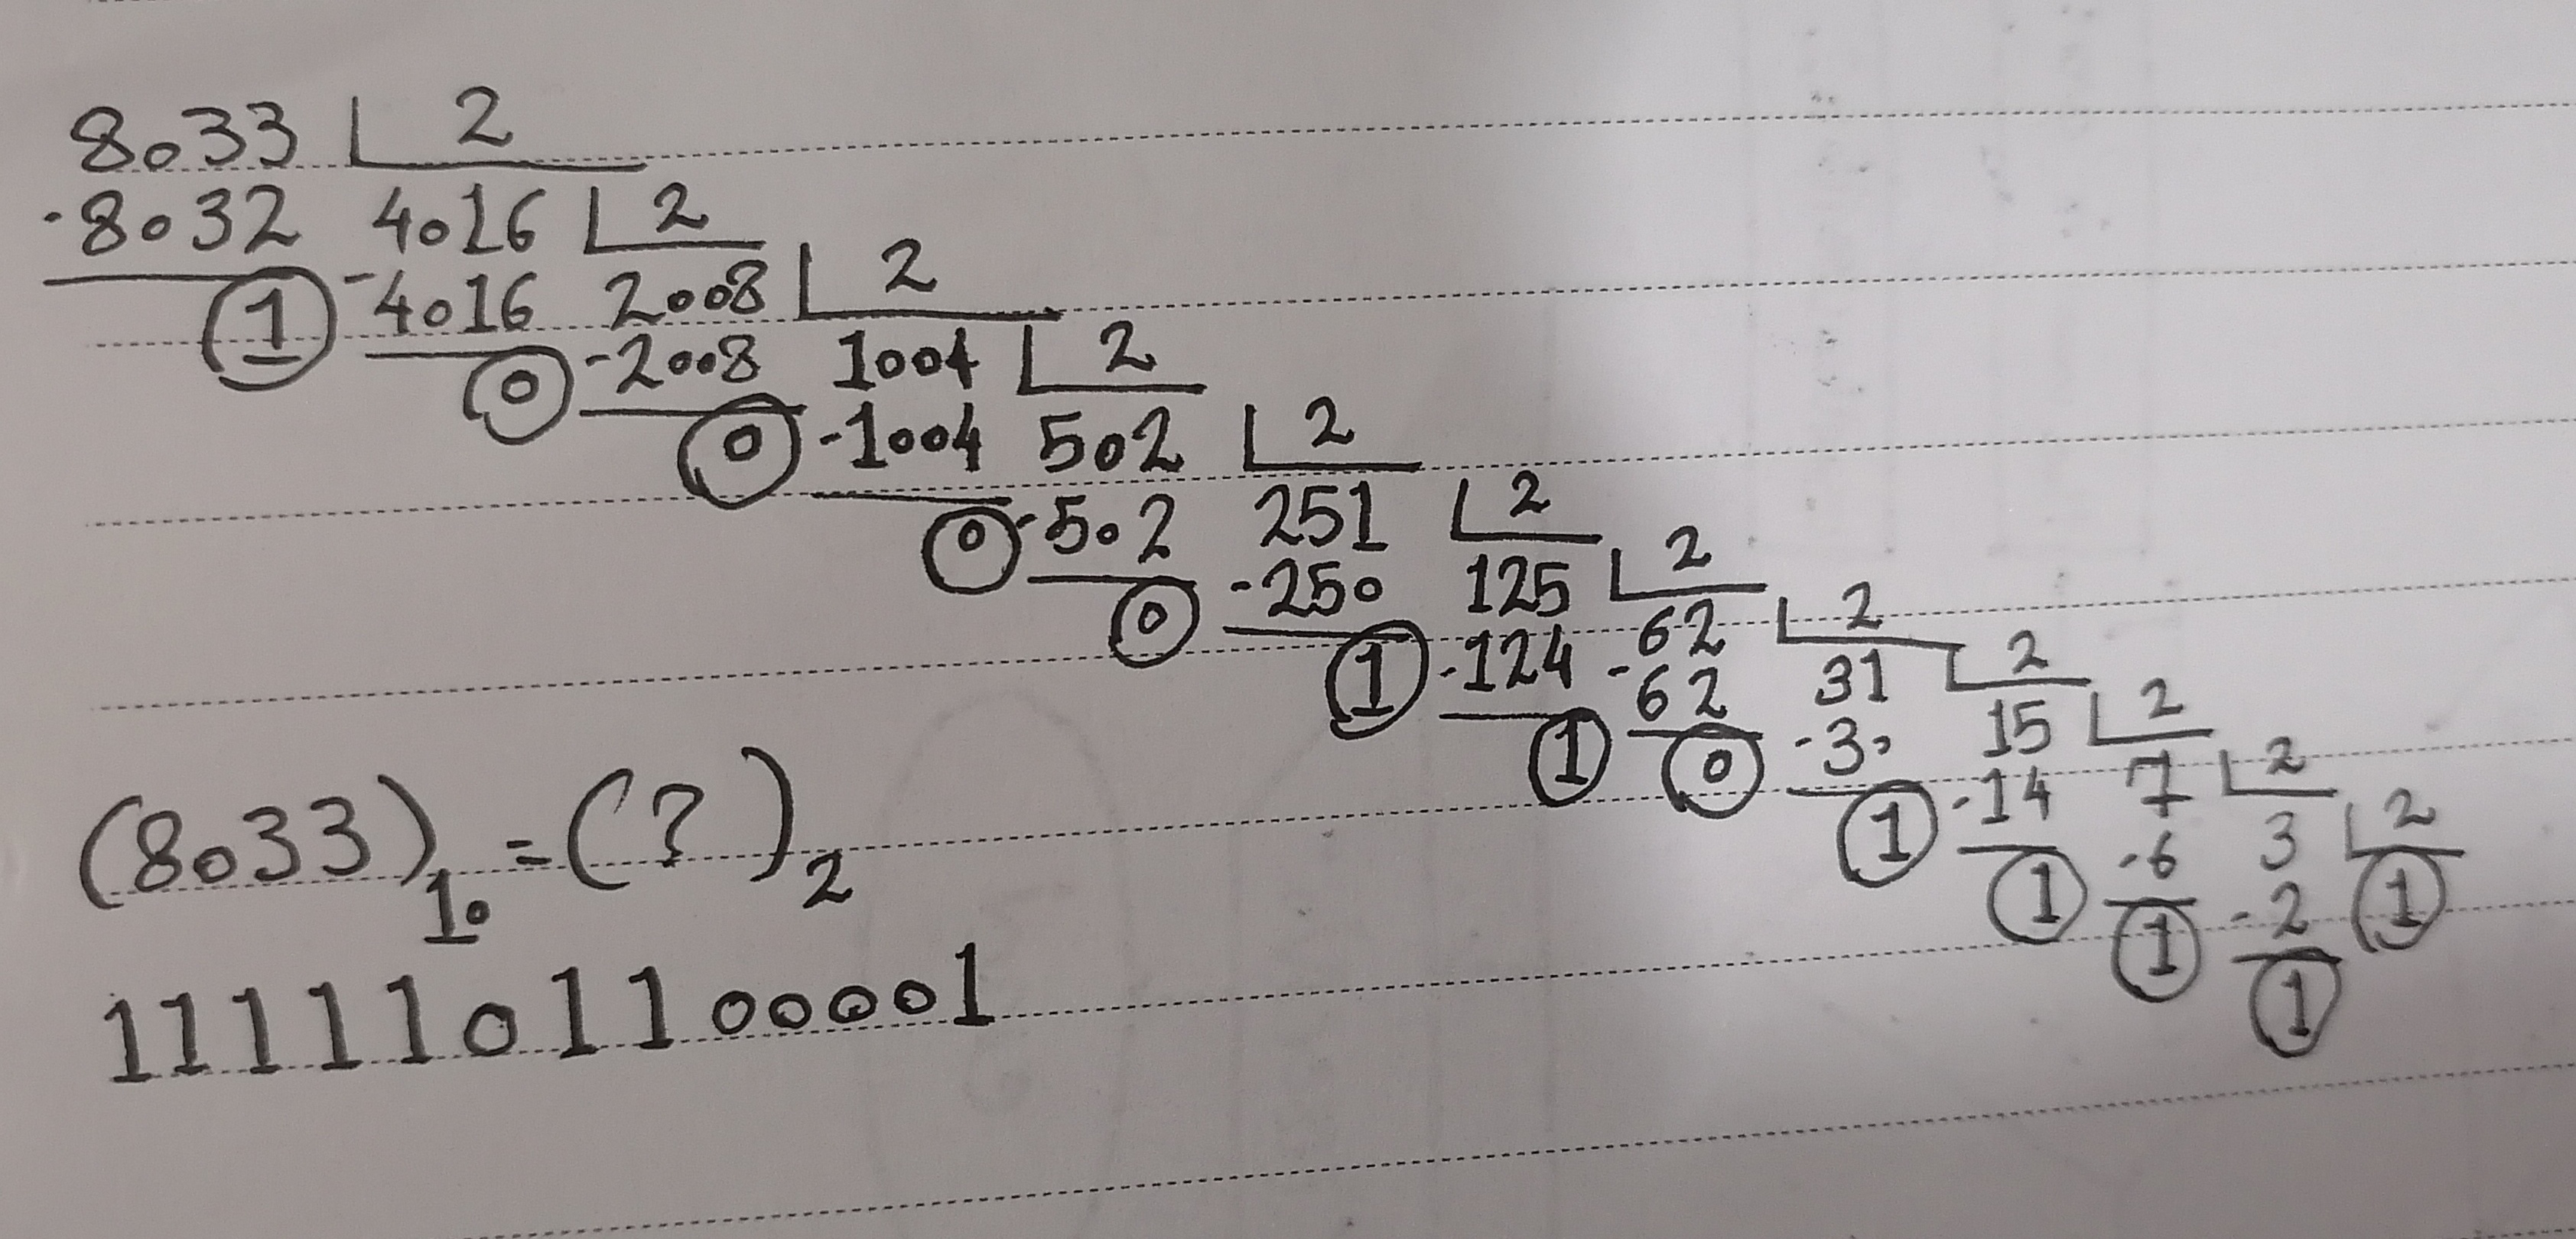 8033 2
-8032 4016 2
1 -4016 2008 2
0 -2008 1004 2
0 -1004 502 2
0 -502 251 2
0 -250 125 2
1 -124 62 2
1 -62 31 2
0 -30 15 2
1 -14 7 2
1 -6 3 2
1 -2 1
1
(8033)10 = (?)2
1111101100001